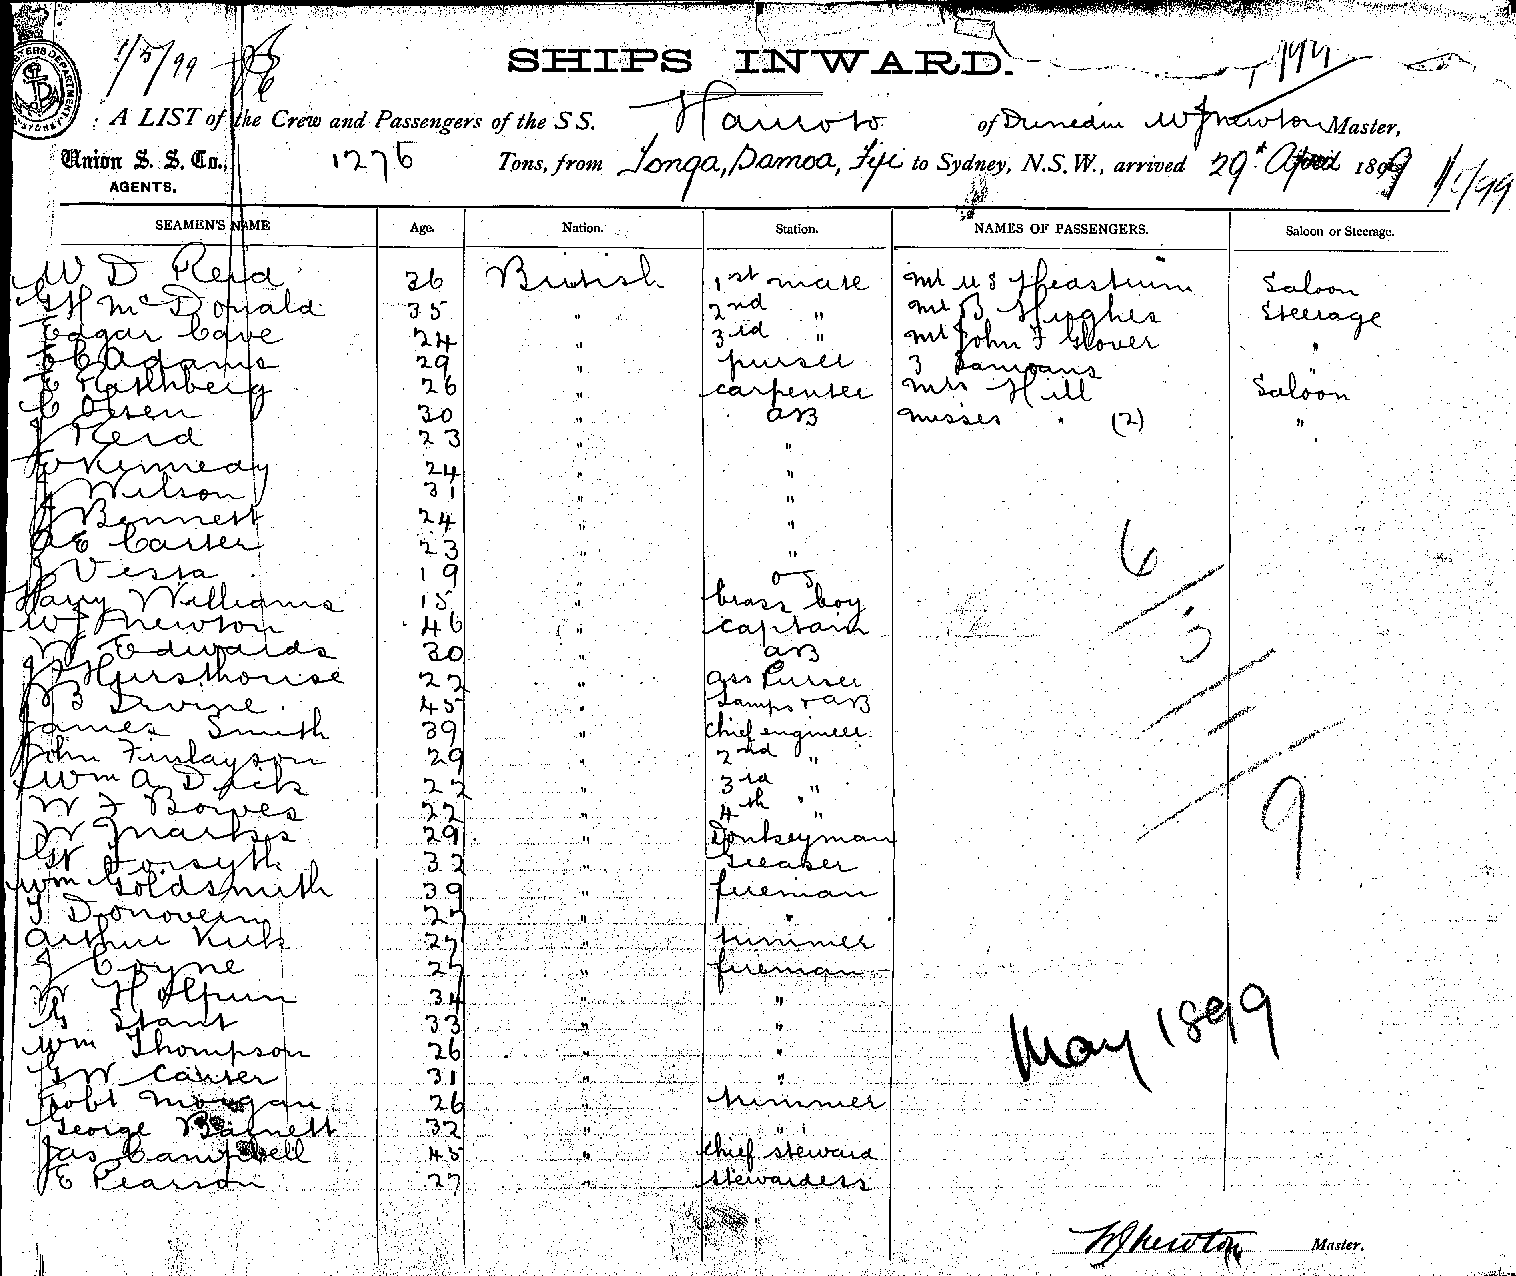 1/5/99
SHIPS INWARD.
A LIST of the Crew and Passengers of the SS. Hauroto of Dunedin W J Newton Master,
Union S. S. Co., AGENTS. 1276 Tons, from Tonga, Samoa, Fiji to Sydney, N.S.W., arrived 29th April 1899 1/5/99
SEAMEN'S NAME Age. Nation. Station. NAMES OF PASSENGERS. Saloon or Steerage.
W D Reid 36 British 1st mate Mr Saloon
McDonald 35 " 2nd " Mr B Hughes Steerage
Edgar Cave 24 " 3rd " Mr John F Glover "
Adams 29 " purser 3 Samoans "
E Rathberg 26 " carpenter Mrs Hill Saloon
C Olsen 30 " AB Misses " (2) "
J Reid 23 " "
Kennedy 24 " "
J Wilson 31 " "
J Bennett 24 " "
A E Carter 23 " "
J Vesta 19 " OS
Harry Williams 15 " brass boy
W J Newton 46 " captain
W Edwards 30 " AB
Hursthouse 22 " ass Purser
B Irvine 45 " Lamps & AB
James Smith 39 " chief engineer
John Finlayson 29 " 2nd "
Wm A Dick 22 " 3rd "
W F Bowes 22 " 4th "
W Marks 29 " Donkeyman
Forsyth 32 " Greaser
Wm Goldsmith 39 " fireman
T Donovan 27 " "
Arthur 27 " trimmer
J Coyne 27 " fireman
W Halpin 34 " "
Stant 33 " "
Wm Thompson 26 " "
G W Carter 31 " "
Robt Morgan 26 " trimmer
George Barnett 32 " "
Jas Campbell 45 " chief steward
E Pearson 27 " stewardess
6
3
9
May 1899
W J Newton Master.